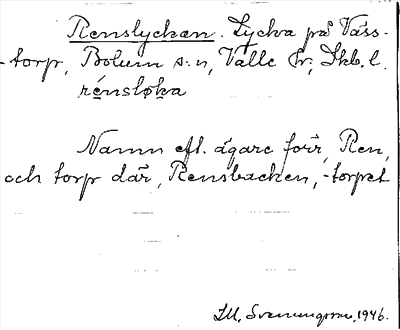 Renslyckan. Lycka på Väss-
-torp, Bolum s:n, Valle hr, Skb. l.
rénsløka
Namn eft. ägare förr, Ren,
och torp där, Rensbacken, -torpet
Svenungsson, 1946.